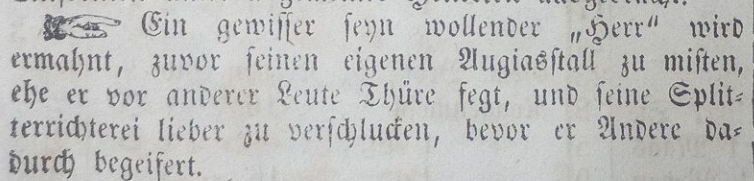 ☞ Ein gewisser seyn wollender „Herr“ wird
ermahnt, zuvor seinen eigenen Augiasstall zu misten,
ehe er vor anderer Leute Thüre fegt, und seine Split-
terrichterei lieber zu verschlucken, bevor er Andere da-
durch begeifert.